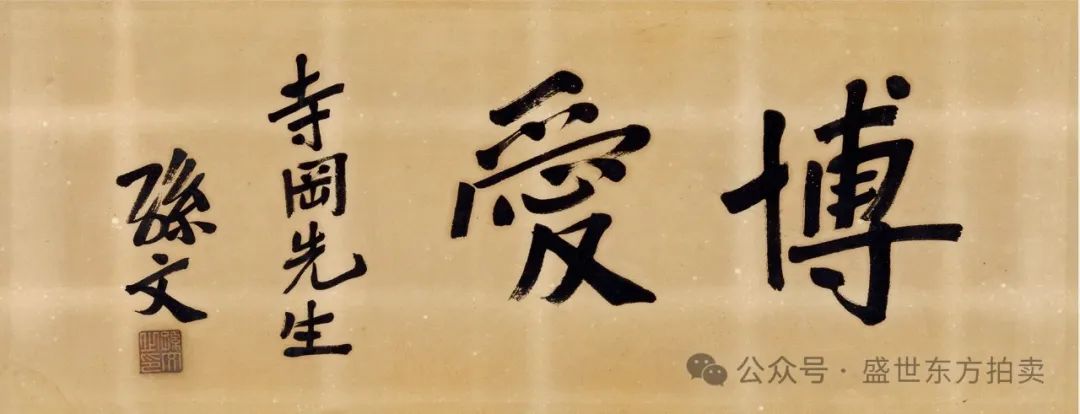 博愛
寺岡先生
孫文
孫文之印
公众号·盛世东方拍卖